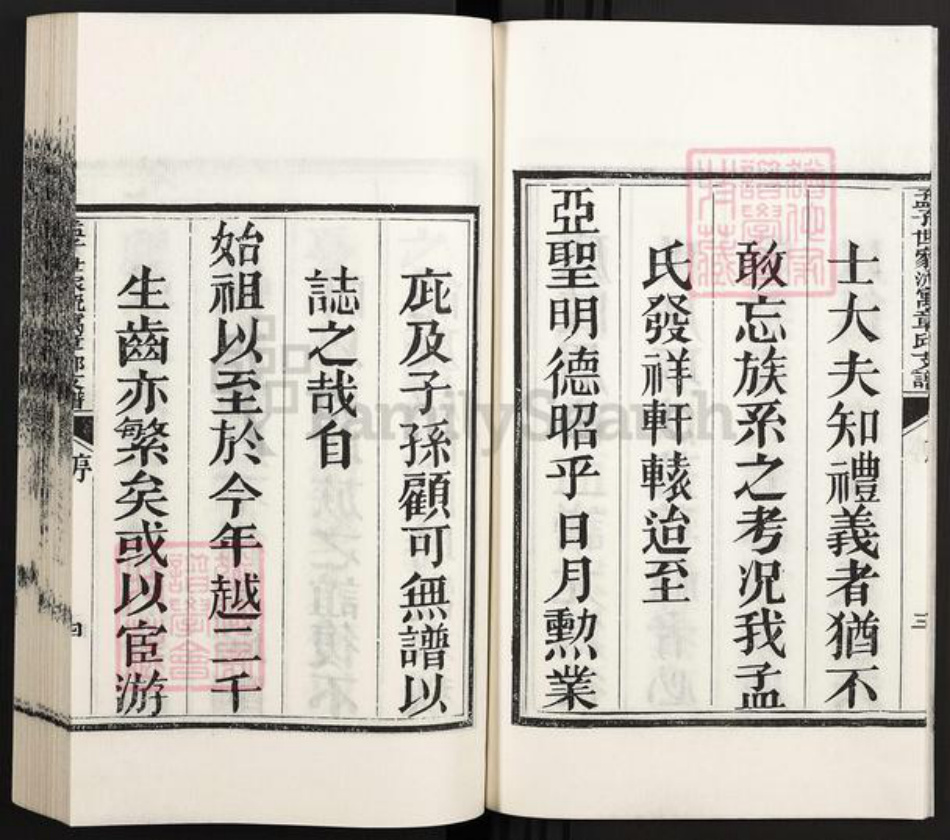 孟子世家流寓章邱支譜
三
士大夫知禮義者猶不
敢忘族系之考況我孟
氏發祥軒轅迨至
亞聖明德昭乎日月勳業
庇及子孫顧可無譜以
誌之哉自
始祖以至於今年越二千
生齒亦繁矣或以宦游
序
四
FamilySearch